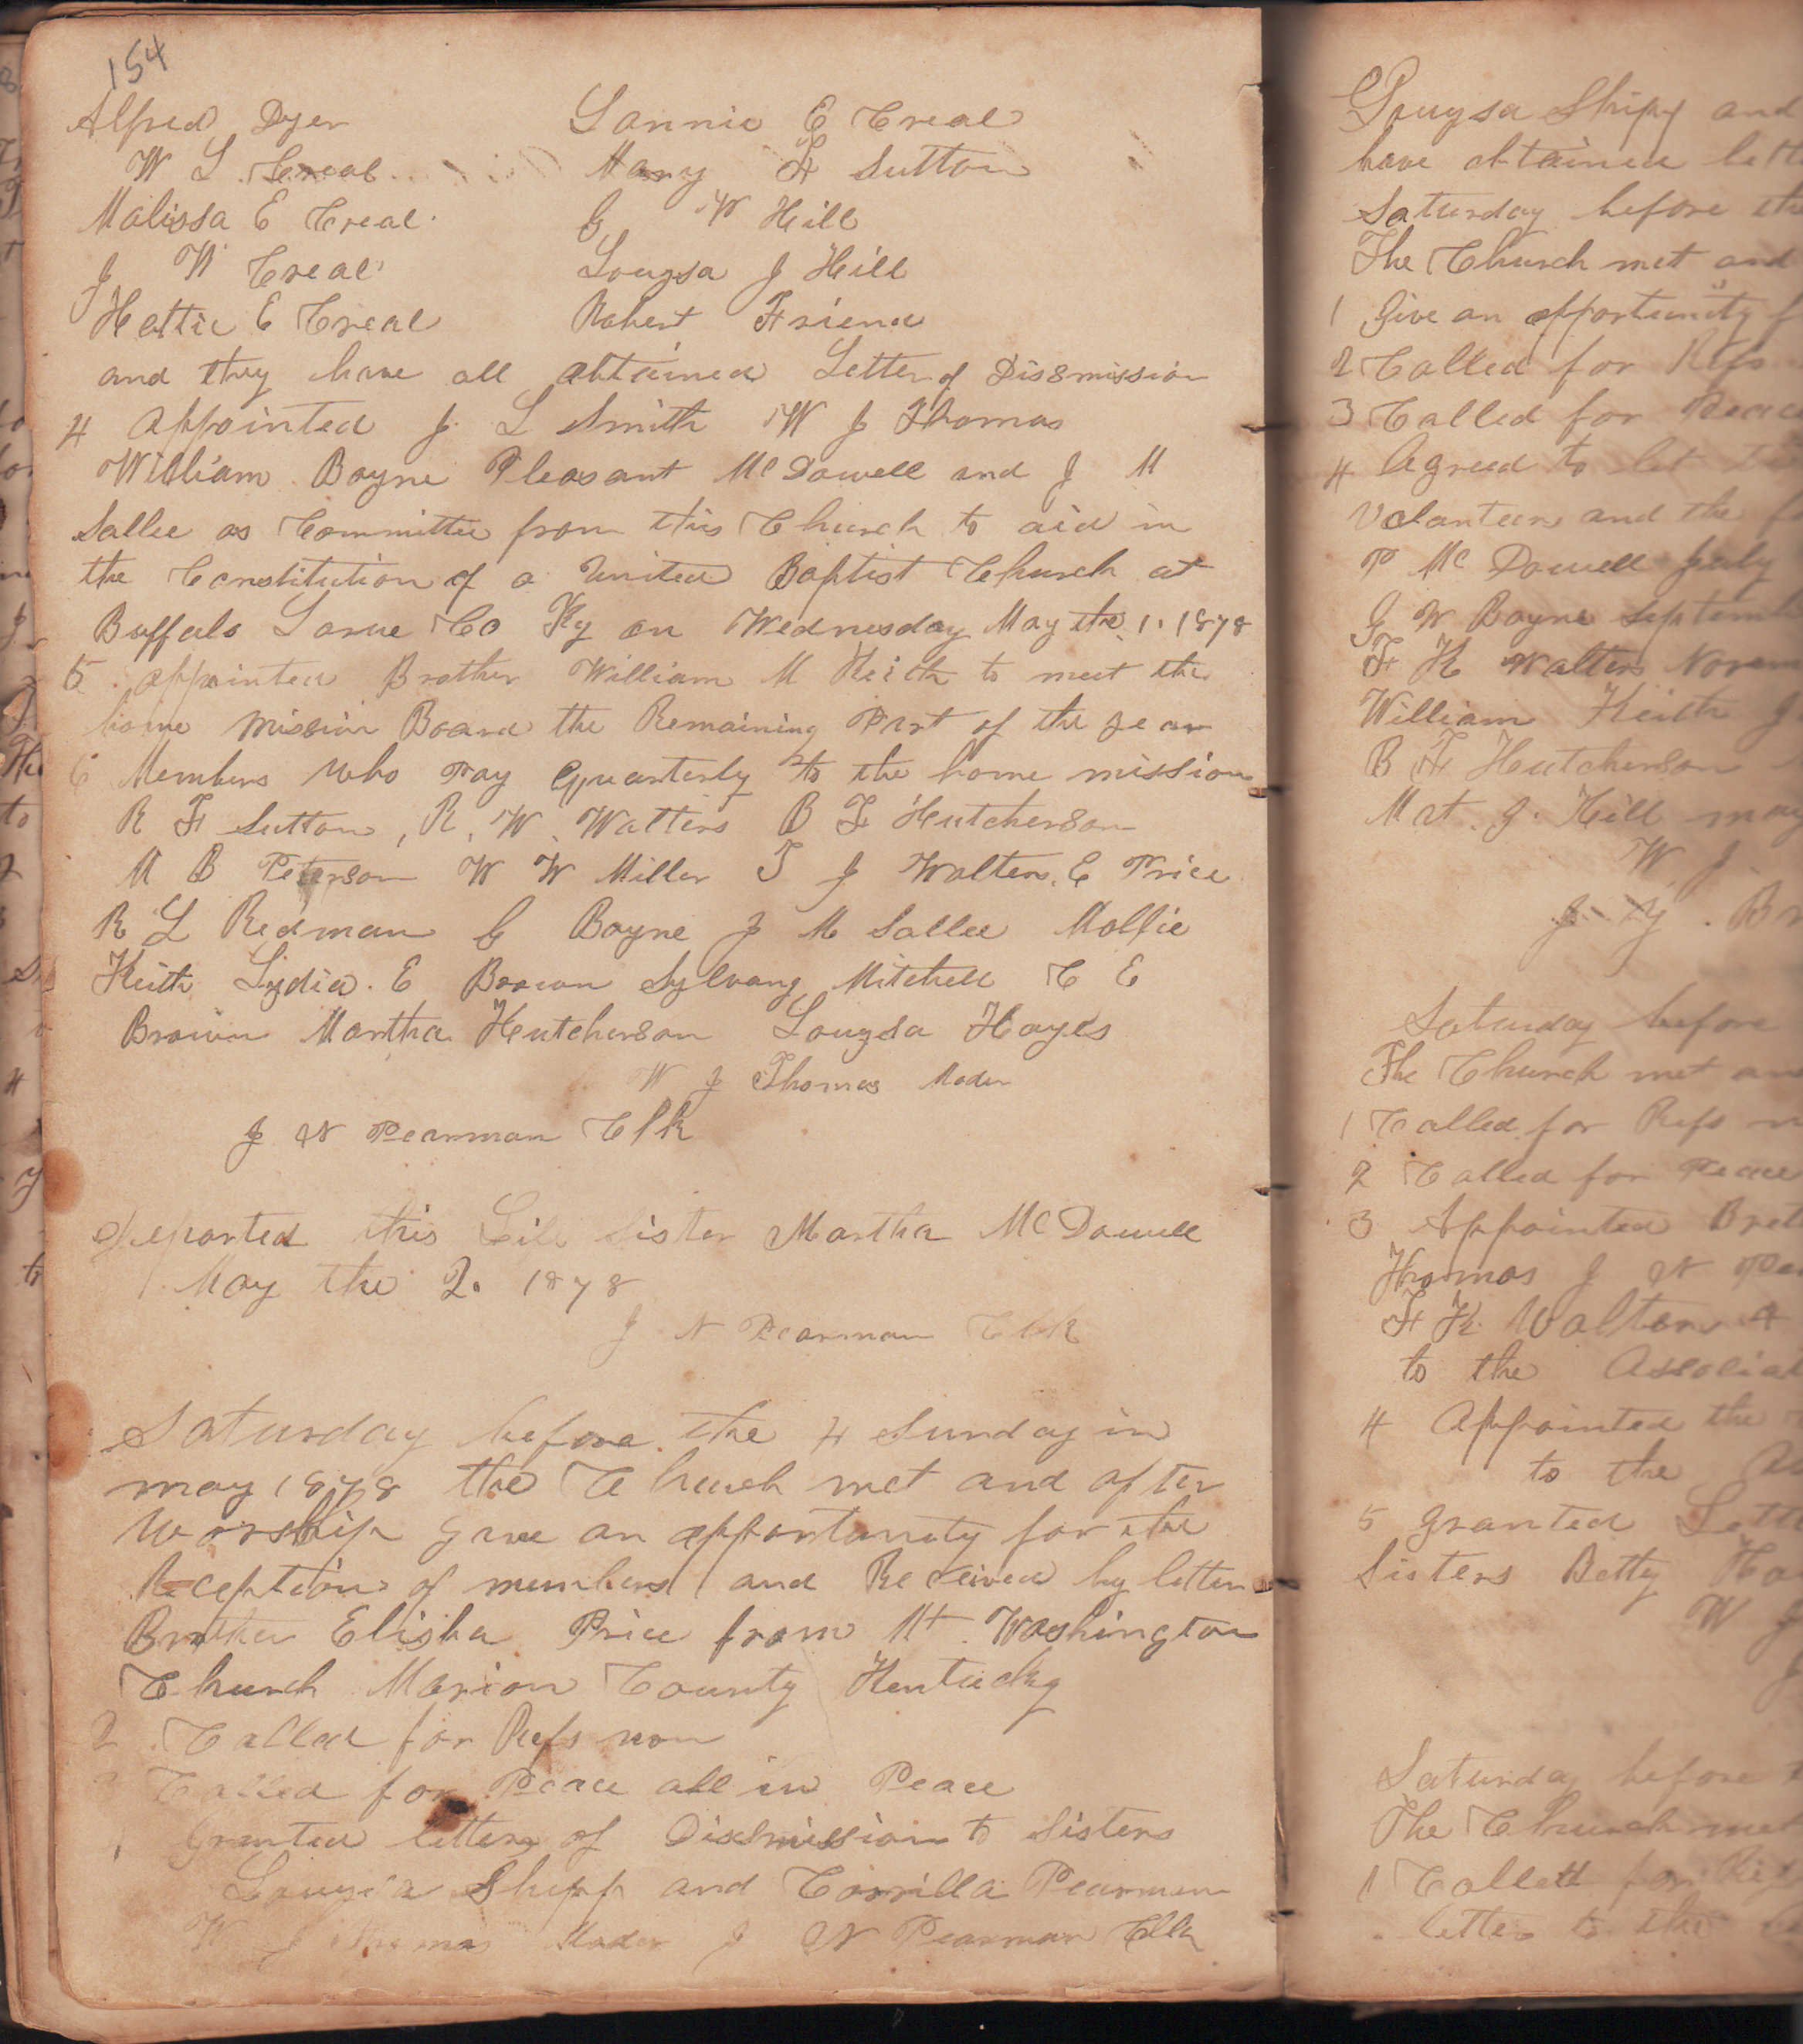 154
Alfred Dyer
W L Creal
Malissa E Creal
J W Creal
Hettie E Creal
Lannie E Creal
Mary F Sutton
G W Hill
Louysa J Hill
Robert Friend
and they have all obtained Letter of Dissmission
4 appointed J. L Smith W J Thomas
William Bayne Pleasant McDowell and J M
Sallee as Committee from this Church to aid in
the Constitution of a United Baptist Church at
Buffalo Larue Co Ky on Wednesday May the 1. 1878
5 appointed Brother William M Keith to meet the
home Mission Board the Remaining Part of the year
6 Members who Pay Quarterly to the home mission
R F Sutton, R. W. Walters B F Hutcherson
M B Peterson W W Miller T J Walters. E Price
R L Redman G Bayne J M Sallee Mollie
Keith Lydia. E Brown Sylvany Mitchell C E
Brown Martha Hutcherson Louysa Hayes
W J Thomas Moder
J N Pearman Clk
Departed this Life sister Martha McDowell
May the 2. 1878
J N Pearman Clk
Saturday before the 4 Sunday in
may 1878 the Church met and after
Worship gave an opportunity for the
Reception of members and Received by letter
Brother Elisha Price from Mt. Washington
Church Marion County Kentucky
2 Called for Refs non
Called for Peace all in Peace
Granted letters of Dissmission to Sisters
Louysa Shipp and Corrilla Pearman
W J Thomas Moder J N Pearman Clk
Louysa Shipp and
have obtained
Saturday before the
The Church met and
1 Give an opportunity
2 Called for Refs
3 Called for Peace
4 Agreed to let
Volanteer and the
P McDowell July
G W Bayne
F K Walters
William Keith
B F Hutcherson
Mat. J. Hill may
W J
Saturday before
The Church met
1 Called for Refs
2 Called for Peace
3 Appointed
Thomas J N
F K Walters
to the
4 Appointed the
to the
5 granted
Sisters Betty
W J
Saturday before
The Church met
1
letter to the